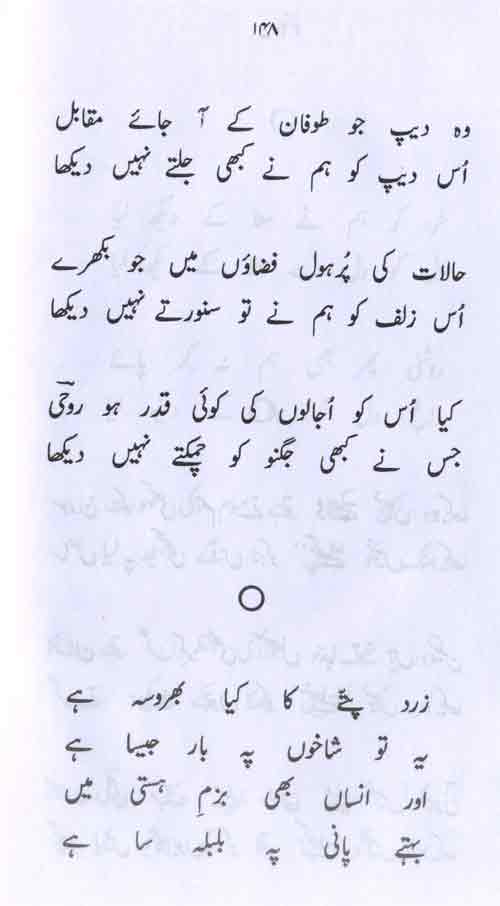 ۱۴۸
وہ دیپ جو طوفان کے آ جائے مقابل
اُس دیپ کو ہم نے کبھی جلتے نہیں دیکھا
حالات کی پُرہول فضاؤں میں جو بکھرے
اُس زلف کو ہم نے تو سنورتے نہیں دیکھا
کیا اُس کو اُجالوں کی کوئی قدر ہو روحیؔ
جس نے کبھی جگنو کو چمکتے نہیں دیکھا
زرد پتّے کا کیا بھروسہ ہے
یہ تو شاخوں پہ بار جیسا ہے
اور انساں بھی بزمِ ہستی میں
بہتے پانی پہ بلبلہ سا ہے